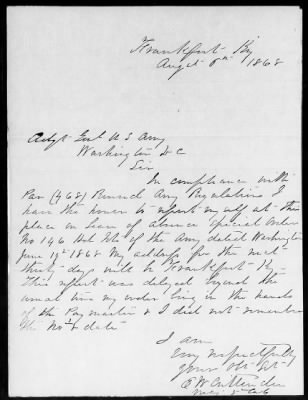 Frankfort Ky
Augt 8th 1868
Adjt Genl U S Army
Washington D C
Sir
In compliance with
Par (468) Revised Army Regulations I
have the honor to report myself at this
place on leave of absence Special Orders
No 146 Hd Qrs of the Army dated Washington
June 19th 1868 My address for the next
thirty days will be Frankfort Ky
This report was delayed beyond the
usual time my order being in the hands
of the Paymaster & I did not remember
the No & date
I am
Very respectfully
Your Obt Svt
Crittenden